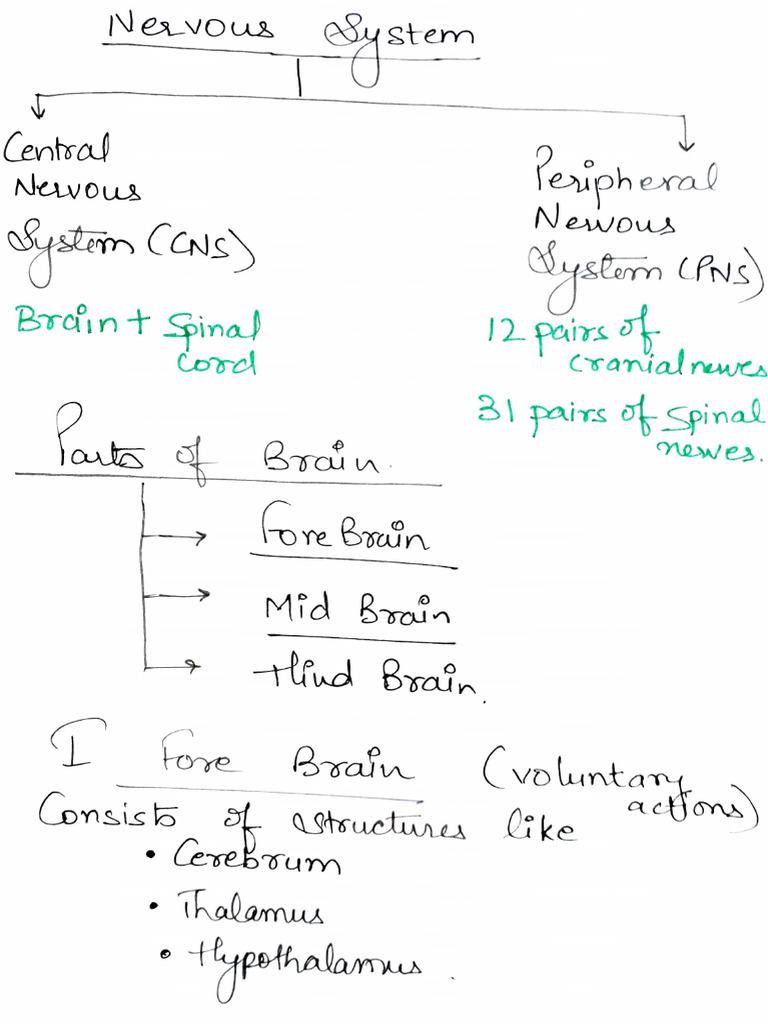 Nervous System
Central
Nervous
System (CNS)
Brain + Spinal
cord
Peripheral
Nervous
System (PNS)
12 pairs of
cranial nerves
31 pairs of Spinal
nerves.
Parts of Brain.
Fore Brain
Mid Brain
Hind Brain.
I Fore Brain (voluntary
actions)
Consists of structures like
• Cerebrum
• Thalamus
• Hypothalamus.